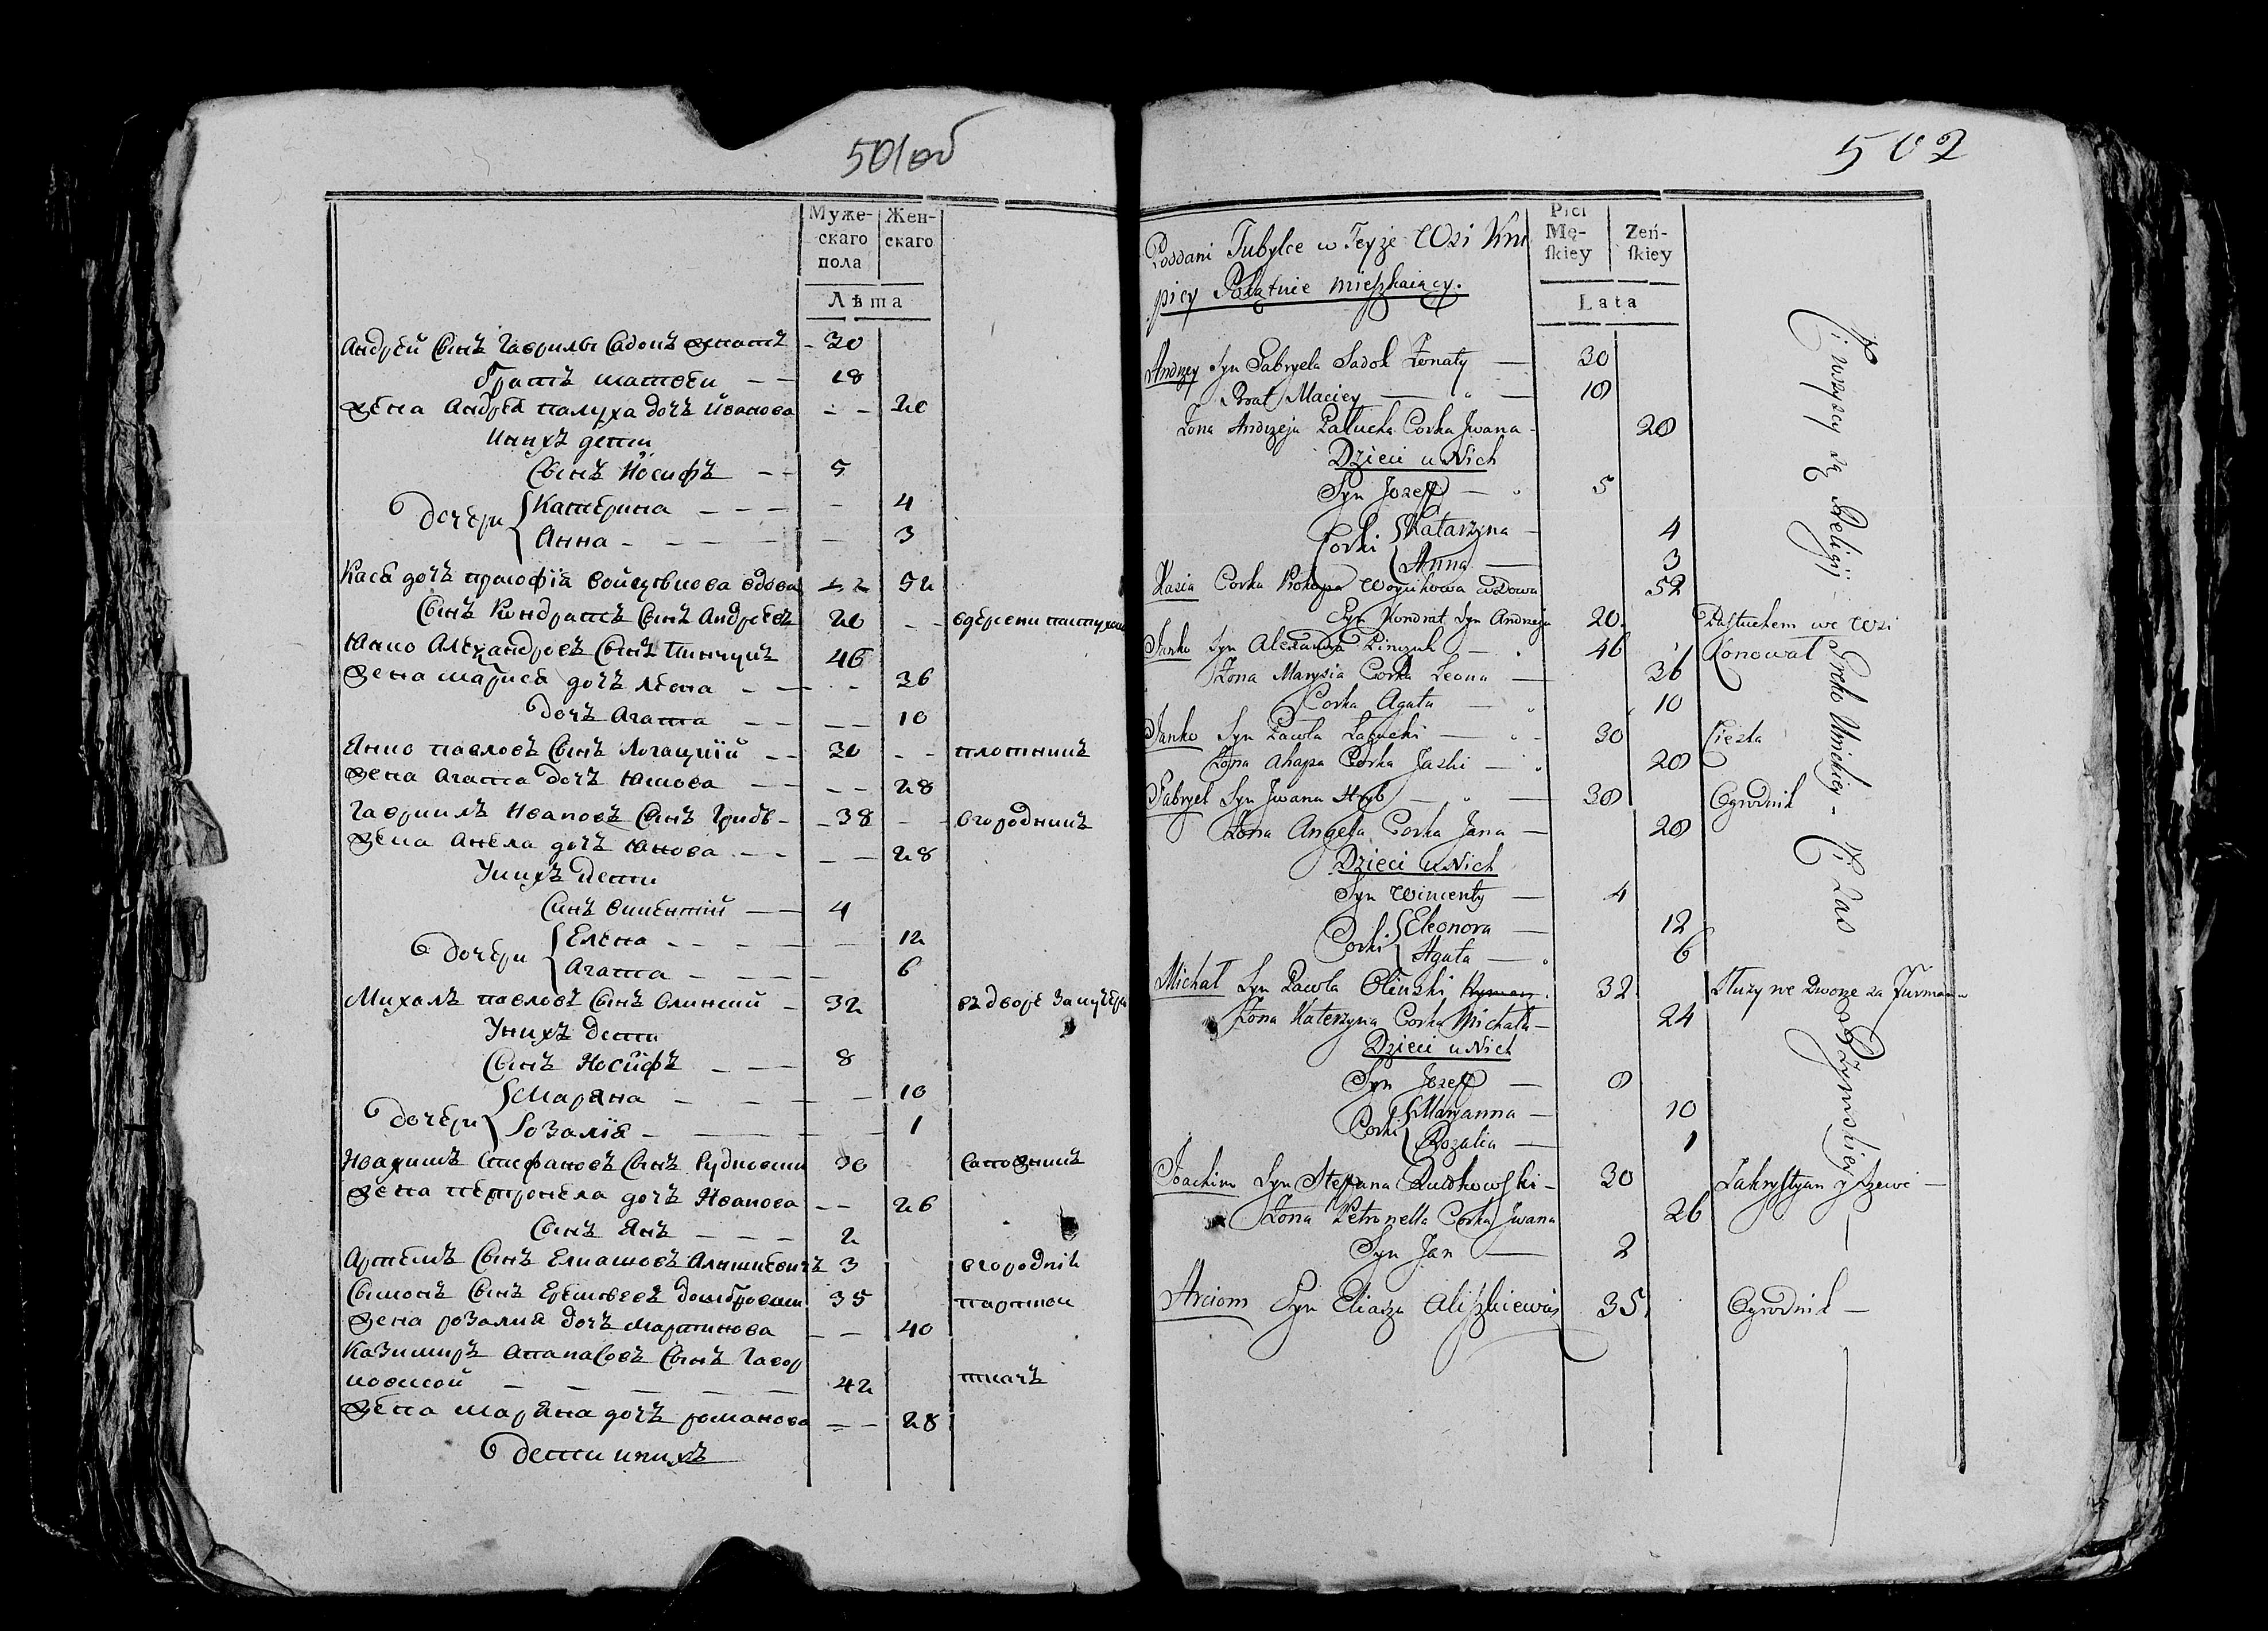 501об
Муже- Жен-
скаго скаго
пола
Лѣта
Андрей Сынъ Гаврилы Садокъ женатъ - 30
братъ матвеи - - 18
жена Андрея палуха дочъ Иванова - - 20
Унихъ дети
Сынъ Иосифъ - - 5
дочери Катерина - - - - 4
Анна - - - - - 3
Кася дочъ прокофія Войцикова вдова 52
Сынъ Кондратъ Сынъ Андреевъ 20 - - вдеревни пастухомъ
Янко Александровъ Сынъ Пинчукъ 46
жена марися дочъ леона - - - 36
дочъ Агата - - - - 10
Янко павловъ Сынъ Лагацкій - - 30 - - плотникъ
жена Агата дочъ Яшкова - - - - 28
Гавриилъ Ивановъ Сынъ Грибъ - - 38 - - огородникъ
жена Анела дочъ Янова - - - - 28
Унихъ дети
Синъ викентій - - 4
дочери Елена - - - - - 12
Агата - - - - 6
Михалъ павловъ Сынъ Олинский - 32 въ дворе За кучера
Унихъ дети
Сынъ Иосифъ - - - 8
дочери Маряна - - - - - 10
розалія - - - - 1
Иоахимъ стефановъ Сынъ Рудковски 30 Сапожникъ
жена петронела дочъ Иванова - - 26
Сынъ Янъ - - - - 2
Артемъ Сынъ Елиашовъ Алишкевичъ 3 огородnik
Сымонъ Сынъ Еремеевъ домбровски 35 портнои
жена розалия дочъ мартинова - - 40
Казимиръ Апанасовъ Сынъ Гавор
новской - - - - - 42 ткачъ
жена маряна дочъ романова - - 28
дети унихъ
502
Płci
Mę- Zeń-
ſkiey ſkiey
Lata
Poddani Tubylce w Teyże Wsi Kru
picy Pokątnie mieszkaiący.
Andrzey Syn Gabryela Sadok Żonaty — 30
Brat Maciey — 18
Żona Andrzeja Pałucha Corka Jwana - 28
Dzieci u Nich
Syn Jozeff — 5
Corki Katarzyna — 4
Anna — 3
Kasia Corka Prokopa Woycikowa wdowa 52
Syn Kondrat Syn Andrzeja 20 Pastuchem we Wsi
Janko Syn Alexandra Pinczuk — 46 Konował
Żona Marysia Corka Leona — 36
Corka Agata — 10
Janko Syn Pawła Łagucki — 30 Ciesla
Żona Ahapa Corka Jaszki — 28
Gabryel Syn Jwana Hryb — 38 Ogrodnik
Żona Angela Corka Jana — 28
Dzieci u Nich
Syn Wincenty — 4
Corki Eleonora — 12
Agata — 6
Michał Syn Pawła Olinski 32 Służy we Dworze za Furmana
Żona Katerzyna Corka Michała — 24
Dzieci u Nich
Syn Jozeff — 8
Corki Maryanna — 10
Rozalia — 1
Joachim Syn Steffana Rudkowski - 30 Zakrystyan y Szewc —
Żona Petronella Corka Jwana 26
Syn Jan — 2
Arciom Syn Eliasza Aliszkiewicz 35 Ogrodnik —
Ci wszyscy są Religij Greko Unickiey - Ci zaś Rzymskiey —